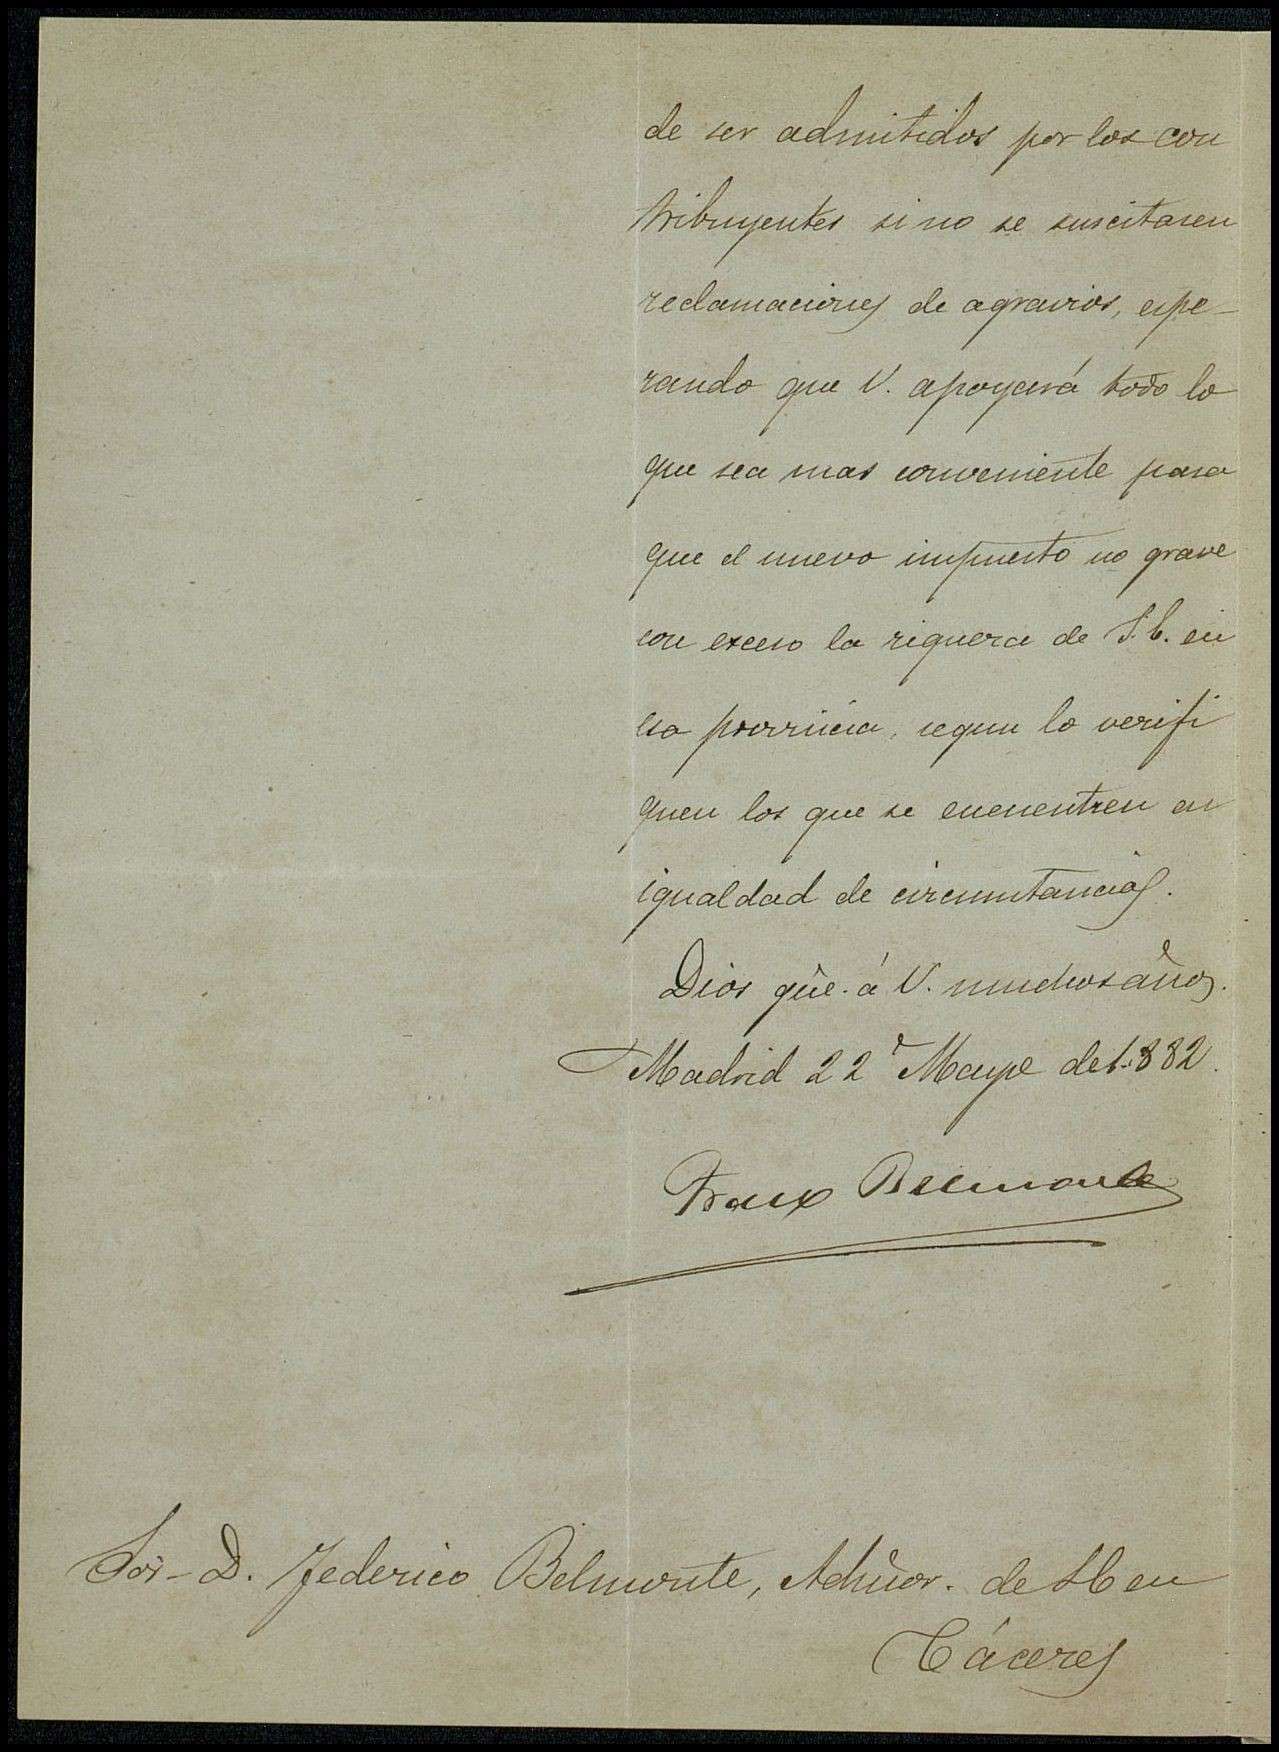 de ser admitidos por los con
tribuyentes si no se suscitasen
reclamaciones de agravios, espe-
rando que V. apoyará todo lo
que sea mas conveniente para
que el nuevo impuesto no grave
con exceso la riqueza de S.E. en
esa provincia, segun lo verifi
quen los que se encuentren en
igualdad de circunstancias.
Dios gũe. á V. muchos años.
Madrid 22 Mayo de 1.882.
Belmonte
Sor. D. Federico Belmonte, Admor. de SE en
Cáceres